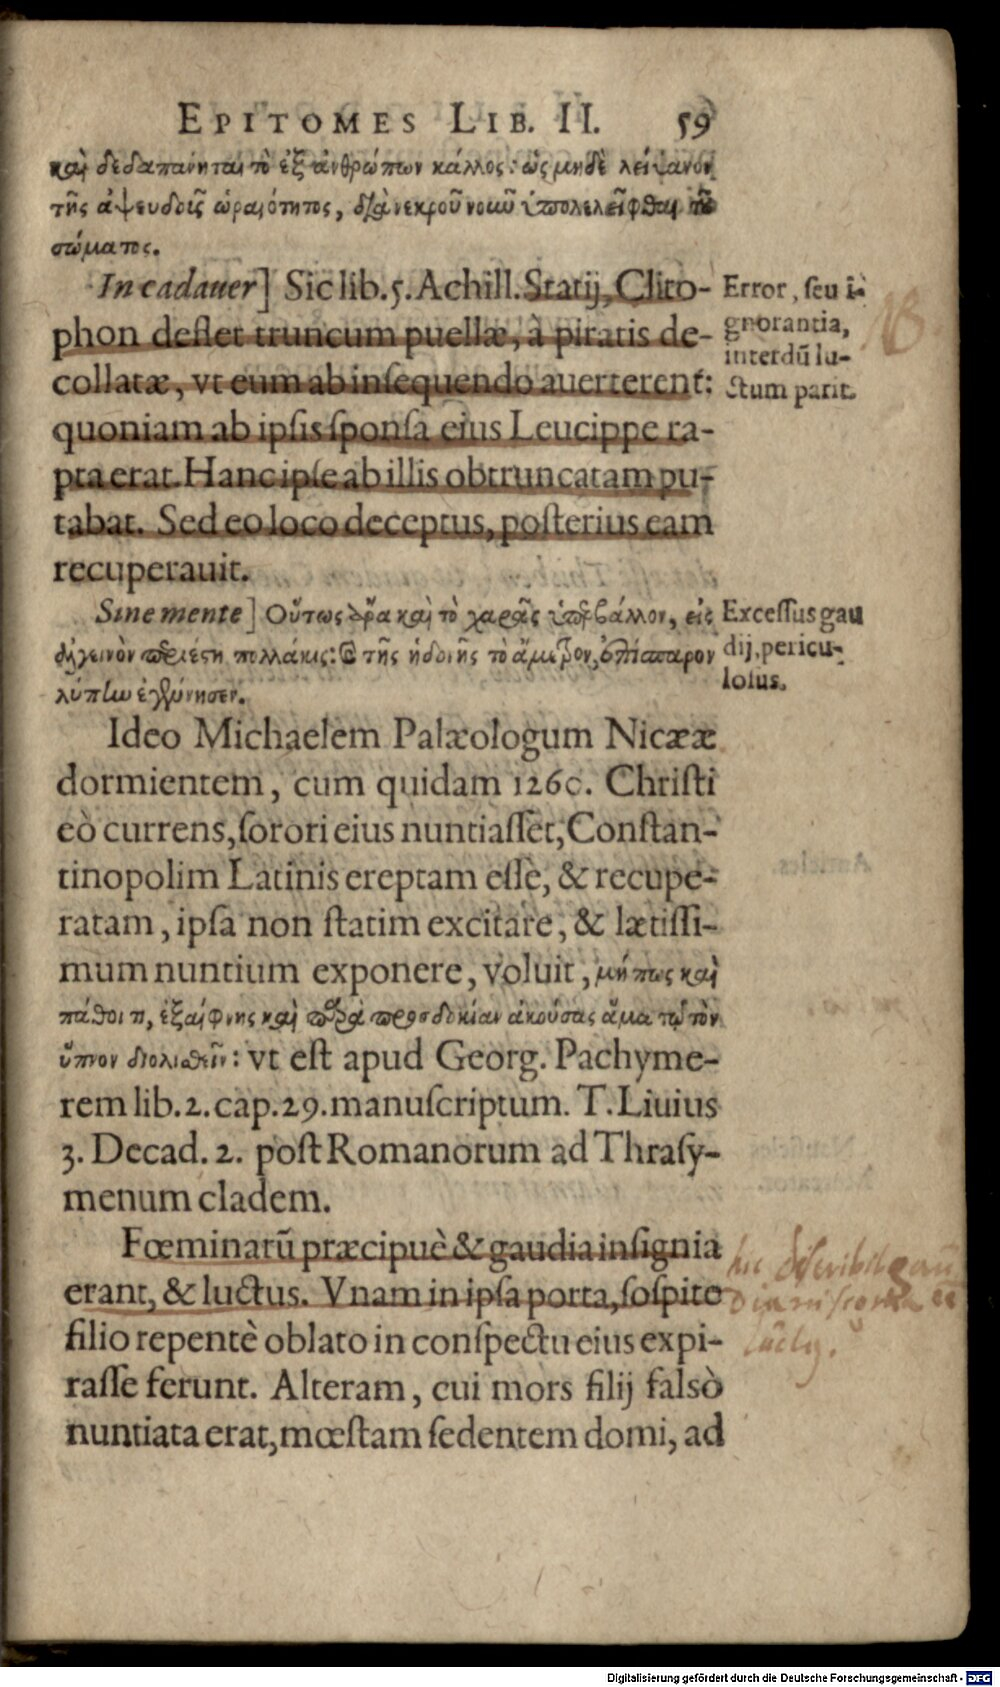 EPITOMES LIB. II. 59
καὶ δεδαπάνηται τὸ ἐξ ἀνθρώπων κάλλος: ὡς μηδὲ λείψανον
τῆς ἀψευδοῦς ὡραιότητος, διὰ νεκροῦ ὑπολελεῖφθαι τοῦ
σώματος.
In cadauer] Sic lib. 5. Achill. Statij, Clito-
phon deflet truncum puellæ, à piratis de-
collatæ, vt eum ab insequendo auerterent:
quoniam ab ipsis sponsa eius Leucippe ra-
pta erat. Hanc ipse ab illis obtruncatam pu-
tabat. Sed eo loco deceptus, posterius eam
recuperauit.
Error, seu i-
gnorantia,
interdũ lu-
ctum parit.
NB
Sine mente] Οὕτως ἄρα καὶ τὸ χαρᾶς ὑπερβάλλον, εἰς
ἀλγεινὸν περιέστη πολλάκις: καὶ τῆς ἡδονῆς τὸ ἄμετρον, ἐπίσπαρτον
λύπην ἐγέννησεν.
Excessus gau
dij, pericu-
losus.
Ideo Michaelem Palæologum Nicææ
dormientem, cum quidam 1260. Christi
eò currens, sorori eius nuntiasset, Constan-
tinopolim Latinis ereptam esse, & recupe-
ratam, ipsa non statim excitare, & lætissi-
mum nuntium exponere, voluit, μήπως καὶ
πάθοι τι, ἐξαίφνης καὶ παρὰ προσδοκίαν ἀκούσας ἅμα τῷ τὸν
ὕπνον διολισθεῖν: vt est apud Georg. Pachyme-
rem lib. 2. cap. 29. manuscriptum. T. Liuius
3. Decad. 2. post Romanorum ad Thrasy-
menum cladem.
Fœminarũ præcipuè & gaudia insignia
erant, & luctus. Vnam in ipsa porta, sospite
filio repentè oblato in conspectu eius expi-
rasse ferunt. Alteram, cui mors filij falsò
nuntiata erat, mœstam sedentem domi, ad
Digitalisierung gefördert durch die Deutsche Forschungsgemeinschaft - DFG